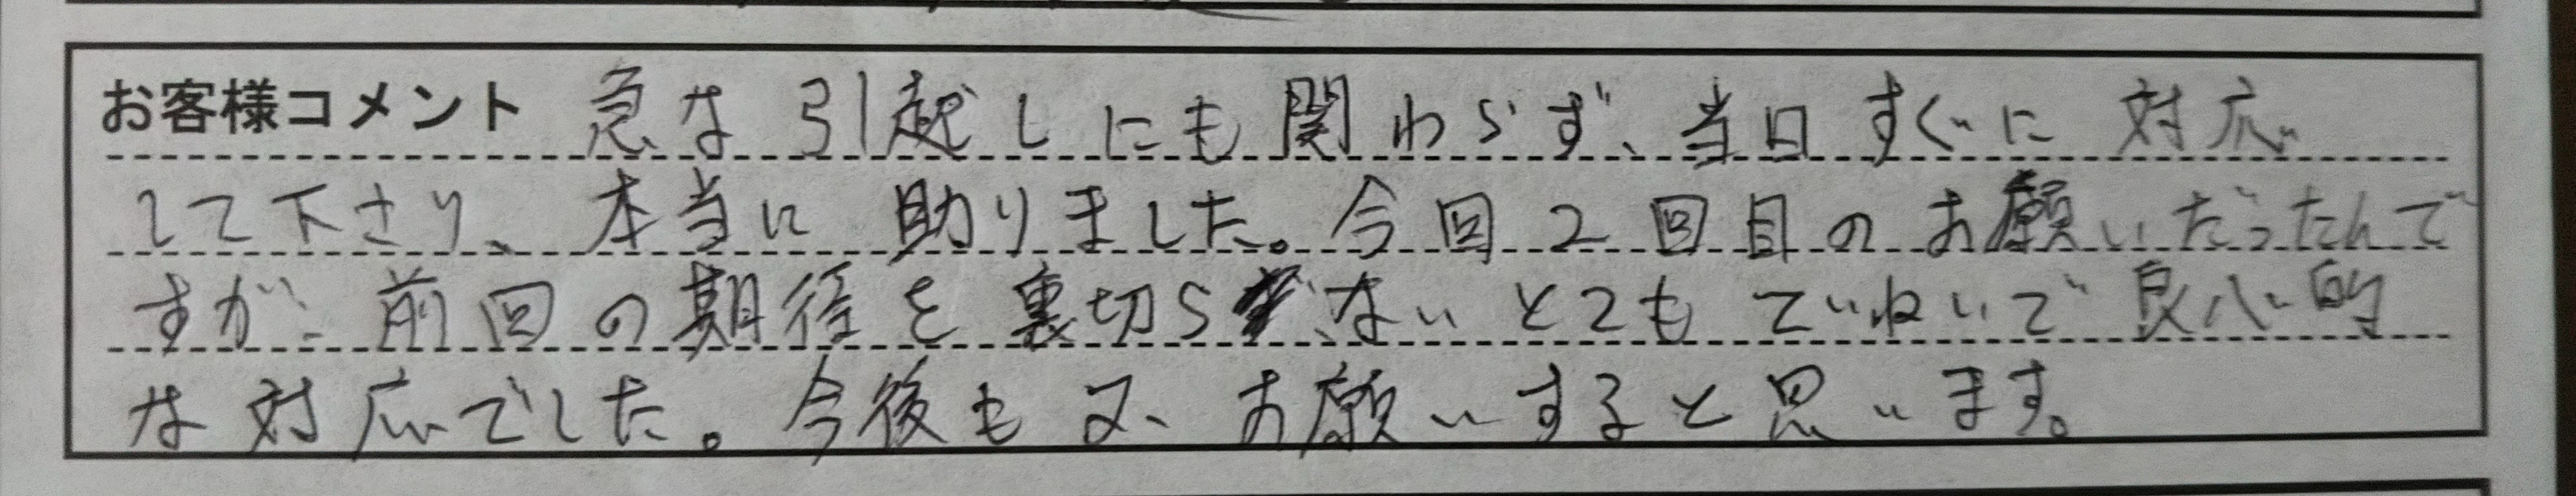 お客様コメント 急な引越しにも関わらず、当日すぐに対応
して下さり、本当に助りました。今回2回目のお願いだったんで
すが、前回の期待を裏切らないとてもていねいで良心的
な対応でした。今後も又、お願いすると思います。